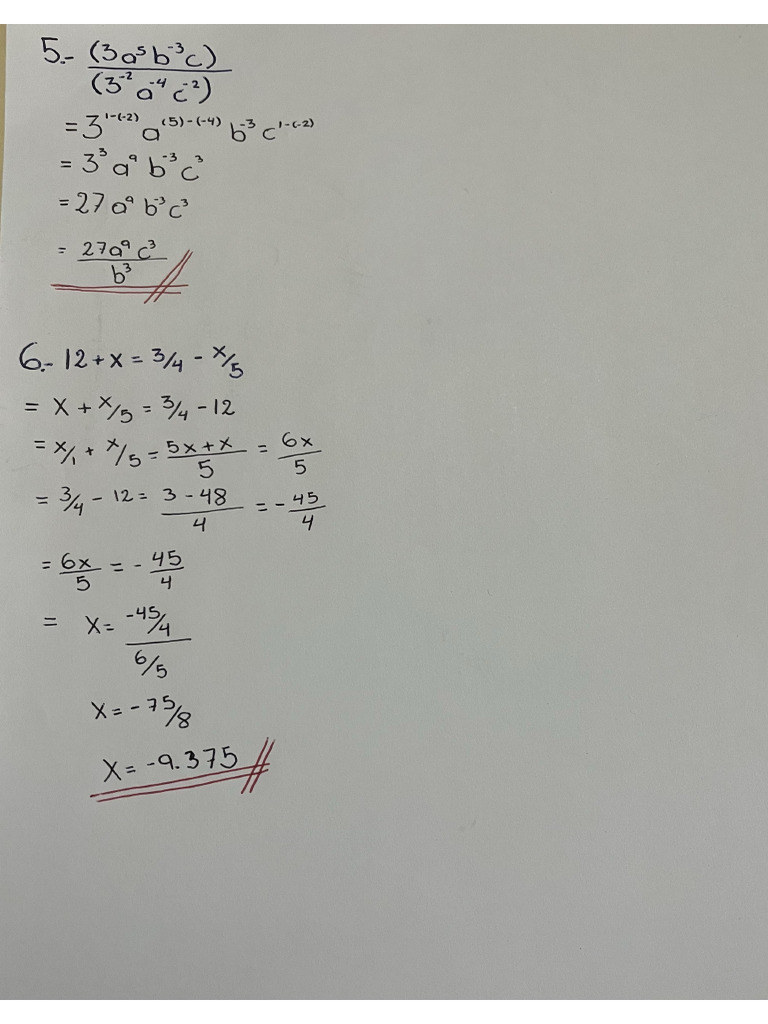 5.- (3a⁵b⁻³c)
(3⁻²a⁻⁴c⁻²)
=3¹⁻⁽⁻²⁾a⁽⁵⁾⁻⁽⁻⁴⁾b⁻³c¹⁻⁽⁻²⁾
= 3³a⁹b⁻³c³
= 27a⁹b⁻³c³
= 27a⁹c³
b³
6.- 12 + x = 3/4 - x/5
= x + x/5 = 3/4 - 12
= x/1 + x/5 = 5x+x/5 = 6x/5
= 3/4 - 12 = 3-48/4 = -45/4
= 6x/5 = -45/4
= x = -45/4
6/5
x = -75/8
x = -9.375